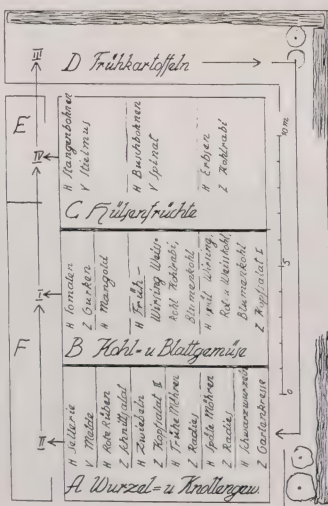 D Frühkartoffeln
III
E
IV
H Stangenbohnen
V Stielmus
H Buschbohnen
V Spinat
H Erbsen
Z Kohlrabi
C Hülsenfrüchte
10 m
F
I
H Tomaten
Z Gurken
H Mangold
H Früh-
Wirsing Weiss-
kohl Kohlrabi,
Blumenkohl
H spät Wirsing,
Rot u Weisskohl
Blumenkohl
Z Kopfsalat I
B Kohl- u Blattgemüse
5
II
H Sellerie
V Melde
H Rote Rüben
Z Schnittsalat
H Zwiebeln
Z Kopfsalat II
H Frühe Möhren
Z Radies
H Späte Möhren
Z Radies
H Schwarzwurzeln
Z Gartenkresse
A Wurzel- u Knollengew.
0